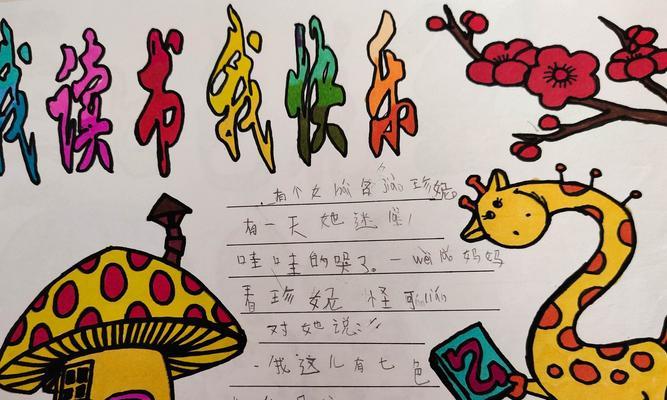 我读书我快乐
有个女hái名jiào珍妮。
有一天她迷
哇哇的哭了。一wèi 妈妈
看珍妮怪可lián
对她说：“
我这儿有七色